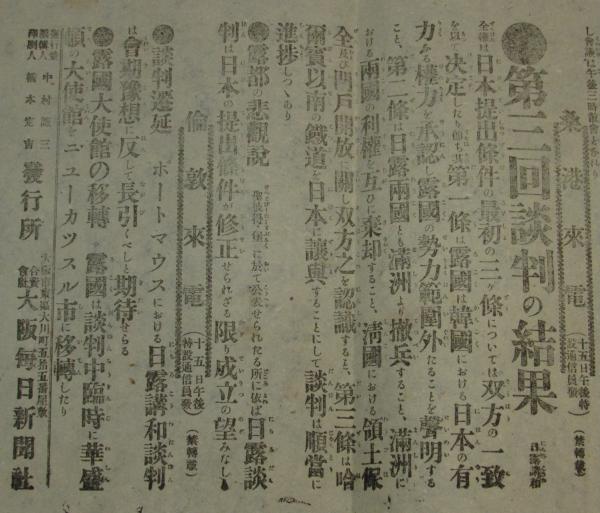 し會議は午後三時散會したり
桑港來電 (十五日午後特設通信員發) (禁轉載)
●第三回談判の結果 日露講和
全權は日本提出條件の最初の三ケ條については双方の一致
を以て決定したり即ち其第一條は露國は韓國における日本の有
力ある權力を承認し露國の勢力範圍外たることを聲明する
こと、第二條は日露兩國とも滿洲より撤兵すること、滿洲に
おける兩國の利權を互ひに棄却すること、淸國における領土保
全及び門戶開放に關し双方之を認識すること、第三條は哈
爾賓以南の鐵道を日本に讓與することにして談判は順當に
進捗しつゝあり
倫敦來電 (十五日午後特設通信員發) (禁轉載)
●露都の悲觀說 聖彼得堡に於て公表せられたる所に依ば日露談
判は日本の提出條件が修正せられざる限り成立の望みなし
●談判遷延 ポートマウスにおける日露講和談判
は會期豫想に反して長引くべしと期待せらる
●露國大使館の移轉 露國は談判中臨時に華盛
頓の大使館をニューカツスル市に移轉したり
發行人 中村
印刷人 橋本定吉
發行所
合資會社 大阪每日新聞社
大阪市東區大川町五拾五番屋敷